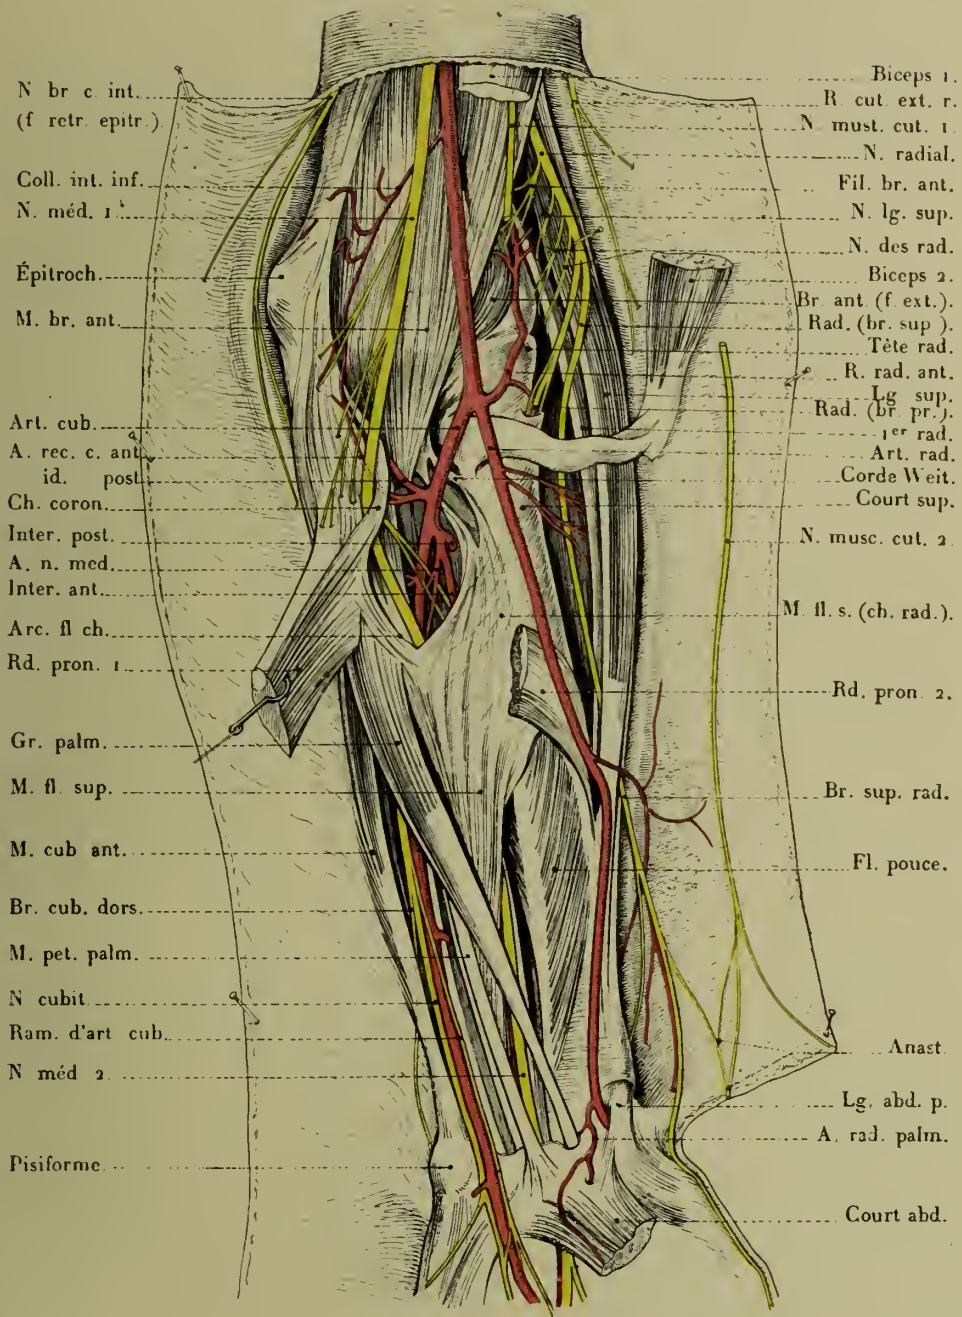 N br c int.
(f retr. epitr.)
Coll. int. inf.
N. méd. 1
Épitroch.
M. br. ant.
Art. cub.
A. rec. c. ant
id. post
Ch. coron.
Inter. post.
A. n. med.
Inter. ant.
Arc. fl ch.
Rd. pron. 1
Gr. palm.
M. fl sup.
M. cub ant.
Br. cub. dors.
M. pet. palm.
N cubit
Ram. d'art cub.
N méd 2
Pisiforme
Biceps 1.
R. cut. ext. r.
N must. cut. 1
N. radial.
Fil. br. ant.
N. lg. sup.
N. des rad.
Biceps 2.
Br. ant. (f. ext.).
Rad. (br. sup ).
Tète rad.
R. rad. ant.
Lg sup.
Rad. (br. pr.).
1er rad.
Art. rad.
Corde Weit.
Court sup.
N. musc. cut. 2
M. fl. s. (ch. rad.).
Rd. pron 2.
Br. sup. rad.
Fl. pouce.
Anast
Lg. abd. p.
A. rad. palm.
Court abd.